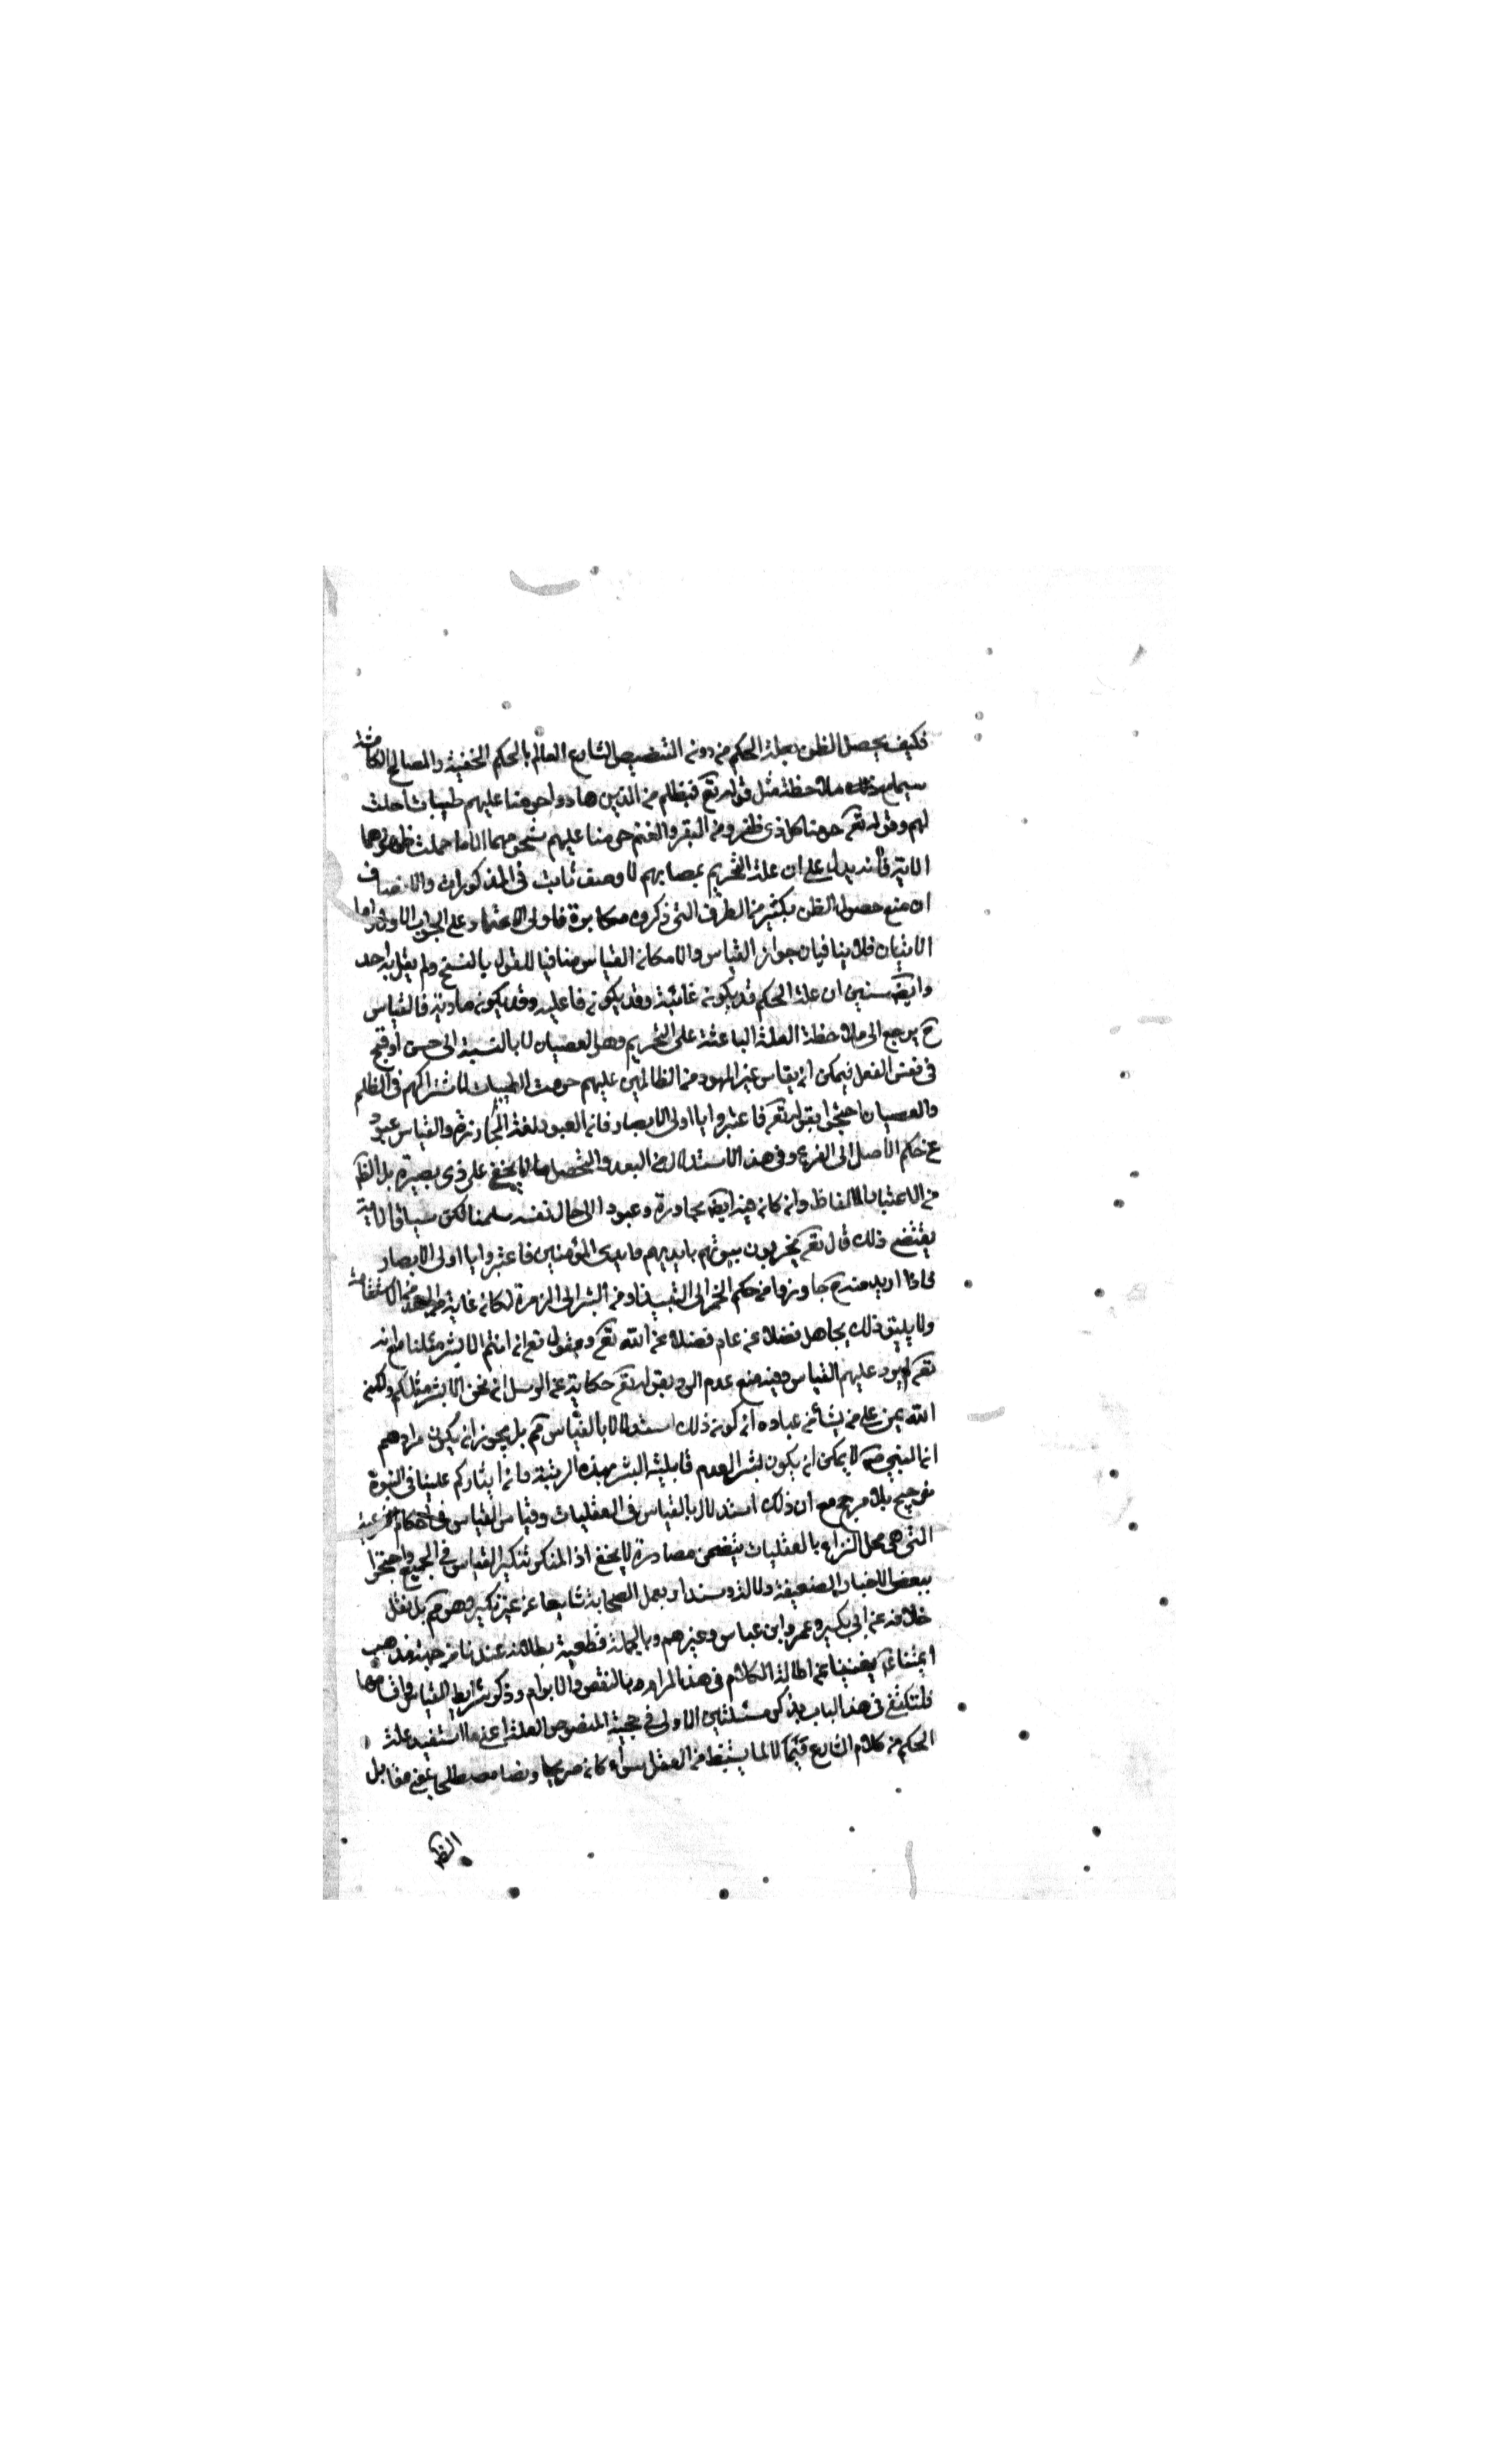 فكيف يحصل الظن بعلة الحكم من دون التنصيص الشارع العالم بالحكم الخفية والمصالح الكامنة
سيما مع ذلك ملاحظة مثل قوله تع فبظلم من الذين هادوا حرمنا عليهم طيبات احلت
لهم وقوله تعم حرمنا كل ذي ظفر ومن البقر والغنم حرمنا عليهم شحومهما الا ما حملت ظهورهما
الاية فانه يدل على ان علة التحريم عصيانهم لا وصف ثابت في المذكورات والانصاف
ان منع حصول الظن بكثير من الطرق التي ذكروه مكابرة فاولى الاعتماد على الجواب الاول واما
الايتان فلا ينافيان جواز القياس والا مكان القياس منافيا للقول بالنسخ ولم يقل به احد
وايض سنبين ان علة الحكم قد يكون غائية وقد يكون فاعلية وقد يكون مادية فالقياس
ح يرجع الى ملاحظة العلة الباعثة على التحريم وهو العصيان لا بالنسبة الى حسن او قبح
في نفس الفعل فيمكن ان يقاس غير اليهود من الظالمين عليهم حرمت الطيبات لاشتراكهم في الظلم
والعصيان احتجوا بقوله تعم فاعتبروا يا اولى الابصار فان العبور لغة المجاوزة والقياس عبور
عن حكم الاصل الى الفرع وفي هذا الاستدلال من البعد والتحصل ما لا يخفى على ذي بصيرة بل الظم
من الاعتبار الاتعاظ وان كان فيه ايض مجاوزة وعبور الى حال نفسه سلمنا لكن سياق الاية
يقتضى ذلك قال تعم يخربون بيوتهم بايديهم وايدى المؤمنين فاعتبروا يا اولى الابصار
فاذا اريد منه ح جاوزوا من حكم الخمر الى النبيذ ومن البر الى الذرة لكان غاية
ولا يليق ذلك بجاهل فضلا عن عالم فضلا عن الله تعم وبقوله تع ان انتم الا بشر مثلنا مع انه
تعم لم يرد عليهم القياس وفيه منع عدم الرد بقوله تعم حكاية عن الرسل ان نحن الا بشر مثلكم ولكن
الله يمن على من يشاء من عباده ان كون ذلك استدلالا بالقياس مم بل يجوز ان يكون مرادهم
ان النبي ص لا يمكن ان يكون بشرا لعدم قابلية البشر بهذه الرتبة وان ايثاركم علينا في النبوة
ترجيح بلا مرجح مع ان ذلك استدلال بالقياس في العقليات وقياس القياس في احكام الشرعية
التي هي محل النزاع بالعقليات يتضمن مصادرة لا يخفى اذ المنكر تنكير القياس في الجميع واحتجوا
ببعض الاخبار الضعيفة دلالة وسندا وبعمل الصحابة شايعا من غير نكير وهو مم بل نقل
خلافه عن ابي بكر وعمر وابن عباس وغيرهم وبالجملة قطعية بطلانه عندنا من جهة مذهب
ائمتنا ع يغنينا عن اطالة الكلام في هذا المرام بالنقض والابرام وذكر شرايط القياس واقسامها
فلنكتفى في هذا الباب بذكر مسئلتين الاولى في حجية المنصوص العلة اعنى ما استفيد علة
الحكم من كلام الشارع لا لما يستنبط من العقل سواء كان صريحا ونصا مصطلحا يعنى مقابل
الظم